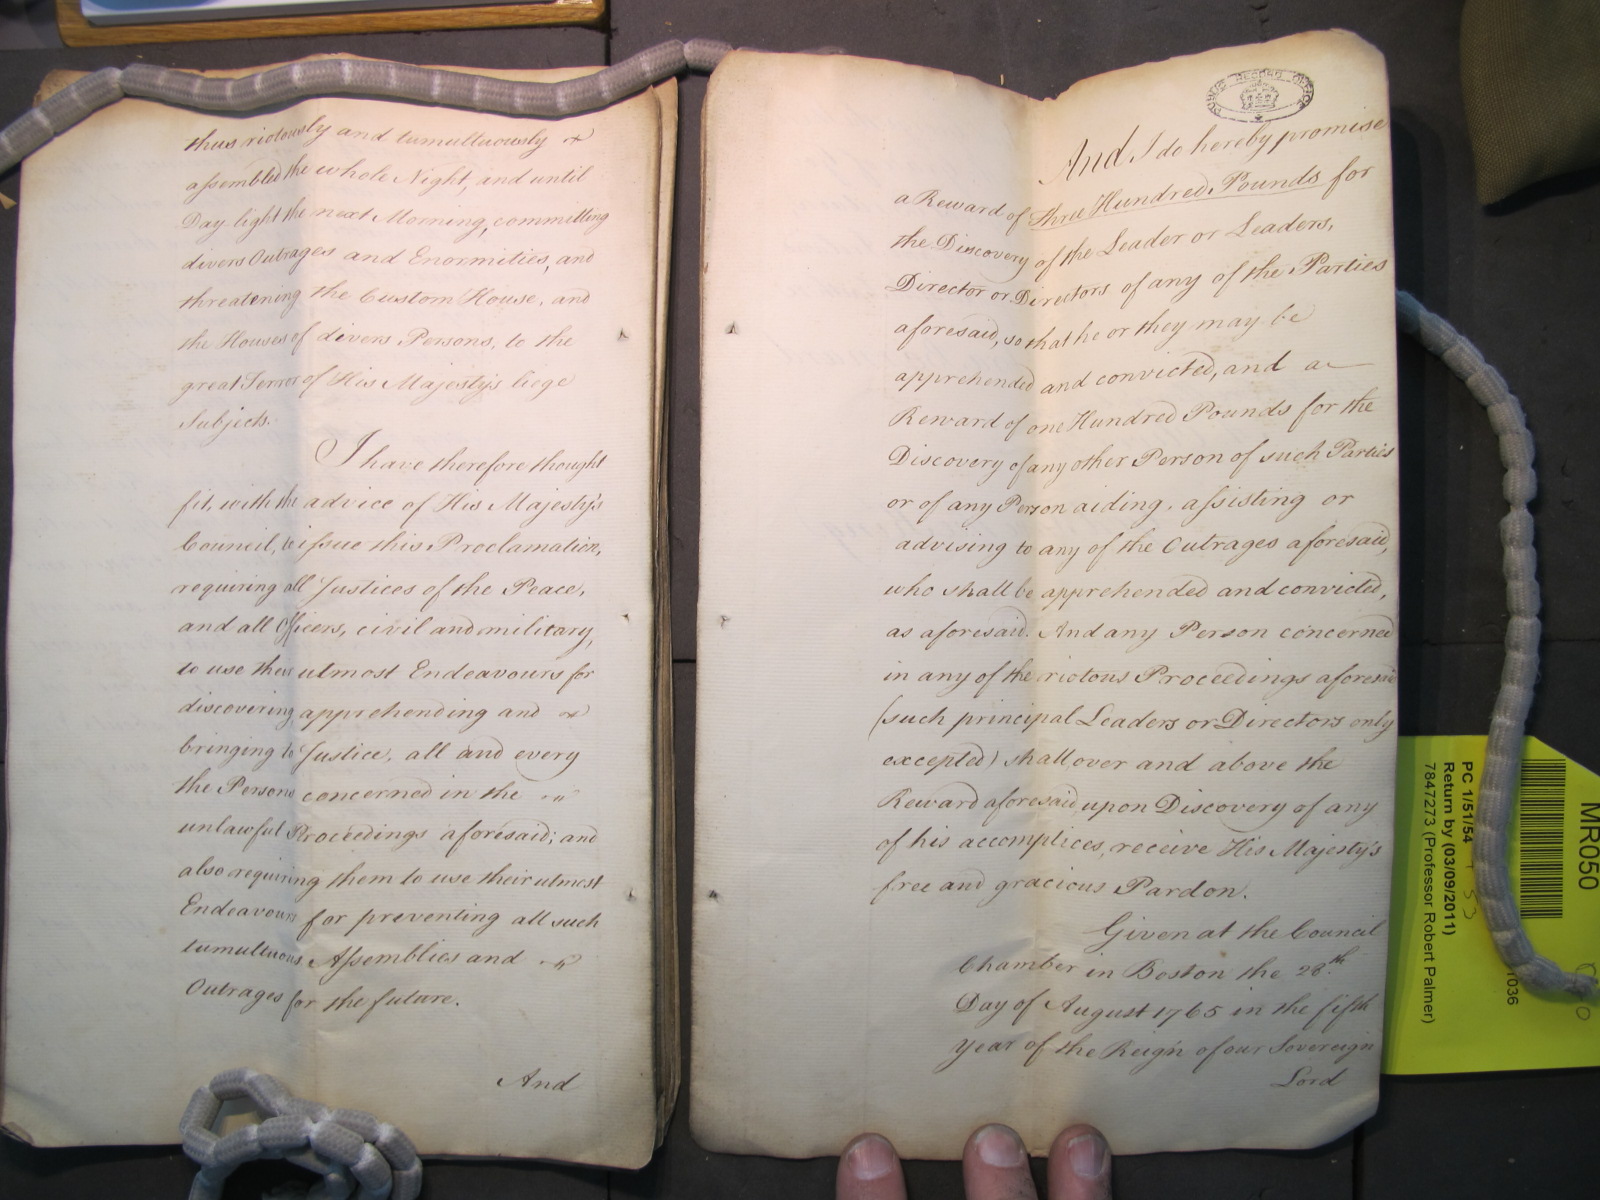 thus riotously and tumultuously
assembled the whole Night, and until
Day-light the next Morning, committing
divers Outrages and Enormities, and
threatening the Custom House, and
the Houses of divers Persons, to the
great Terror of His Majesty's liege
Subjects.
I have therefore thought
fit, with the advice of His Majesty's
Council, to issue this Proclamation,
requiring all Justices of the Peace,
and all Officers, civil and military,
to use their utmost Endeavours for
discovering apprehending and
bringing to Justice, all and every
the Persons concerned in the
unlawful Proceedings aforesaid; and
also requiring them to use their utmost
Endeavours for preventing all such
tumultuous Assemblies and
Outrages for the future.
And
PUBLIC RECORD OFFICE
And I do hereby promise
a Reward of three Hundred Pounds for
the Discovery of the Leader or Leaders,
Director or Directors of any of the Parties
aforesaid, so that he or they may be
apprehended and convicted, and a
Reward of one Hundred Pounds for the
Discovery of any other Person of such Parties
or of any Person aiding, assisting or
advising to any of the Outrages aforesaid,
who shall be apprehended and convicted,
as aforesaid. And any Person concerned
in any of the riotous Proceedings aforesaid
(such principal Leaders or Directors only
excepted) shall over and above the
Reward aforesaid upon Discovery of any
of his accomplices, receive His Majesty's
free and gracious Pardon.
Given at the Council
Chamber in Boston the 28th
Day of August 1765 in the fifth
Year of the Reign of our Sovereign
Lord
MR050
1036
PC 1/51/54
Return by (03/09/2011)
7847273 (Professor Robert Palmer)